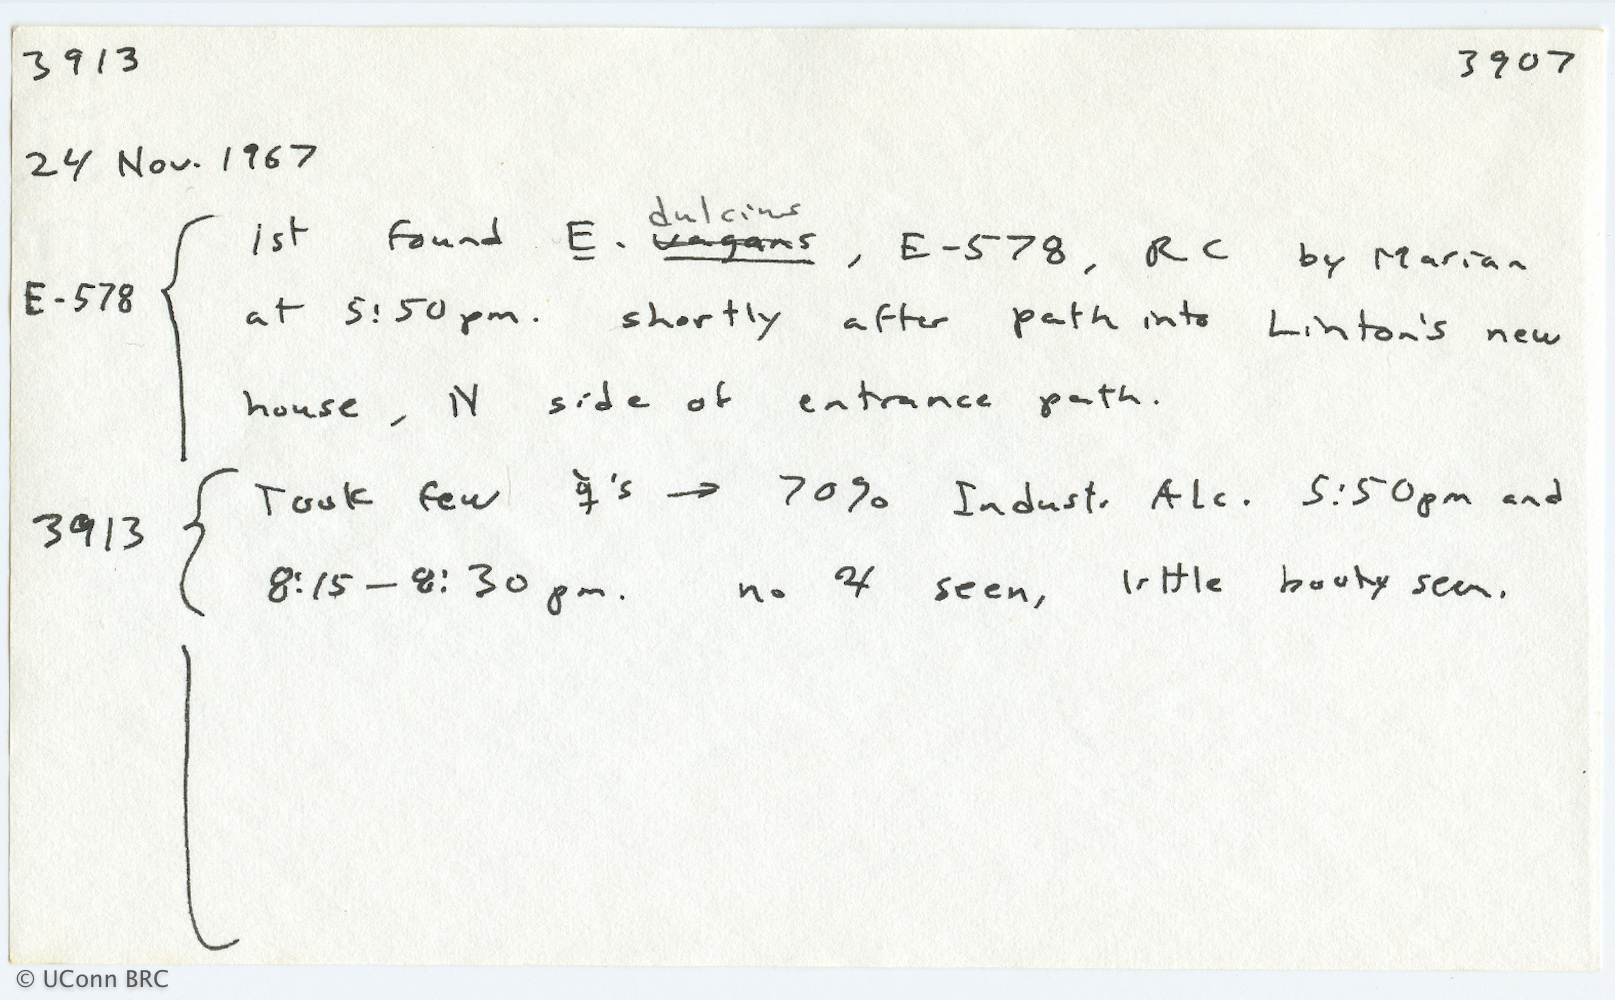 3913 3907
24 Nov. 1967
dulcius
1st found E. vagans, E-578, RC by Marian
E-578 at 5:50 pm. shortly after path into Linton's new
house, N side of entrance path.
Took few ☿'s → 70% Indust. Alc. 5:50pm and
3913
8:15 – 8:30 pm. no ♃ seen, little booty seen.
© UConn BRC